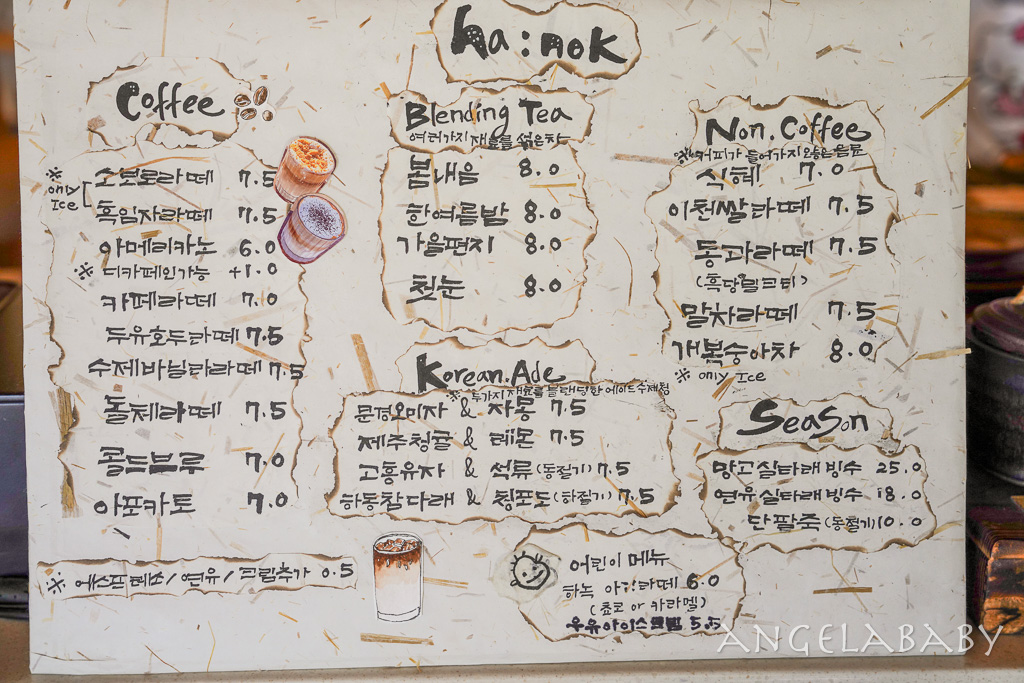 ha:nok
Coffee
※ only Ice
소보로라떼 7.5
흑임자라떼 7.5
아메리카노 6.0
※ 디카페인가능 +1.0
카페라떼 7.0
두유호두라떼 7.5
수제바닐라라떼 7.5
돌체라떼 7.5
콜드브루 7.0
아포카토 7.0
※ 에스프레소/연유/크림추가 0.5
Blending Tea
여러가지 재료를 섞은차
봄내음 8.0
한여름밤 8.0
가을편지 8.0
첫눈 8.0
Korean.Ade
※ 두가지 재료를 블랜딩한 에이드 수제청
문경오미자 & 자몽 7.5
제주청귤 & 레몬 7.5
고흥유자 & 석류(동절기) 7.5
하동참다래 & 청포도(하절기) 7.5
Non.Coffee
※커피가 들어가지 않은 음료
식혜 7.0
이천쌀라떼 7.5
동과라떼 7.5
(흑당밀크티)
말차라떼 7.5
개복숭아차 8.0
※ only Ice
Season
망고실타래빙수 25.0
연유실타래빙수 18.0
단팥죽(동절기) 10.0
어린이 메뉴
하녹 라떼 6.0
(쵸코 or 카라멜)
우유아이스 5.5
ANGELABABY